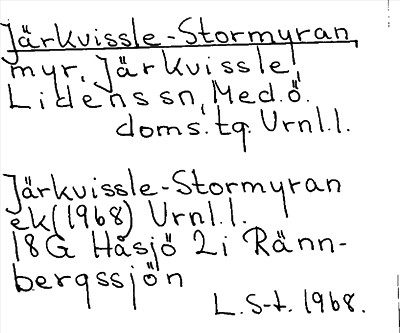 Järkvissle-Stormyran,
myr, Järkvissle,
Lidens sn, Med.ö.
doms.tg. Urnl.l.
Järkvissle-Stormyran
ek(1968) Urnl.l.
18G Håsjö 2i Ränn-
bergssjön
L.S-t. 1968.